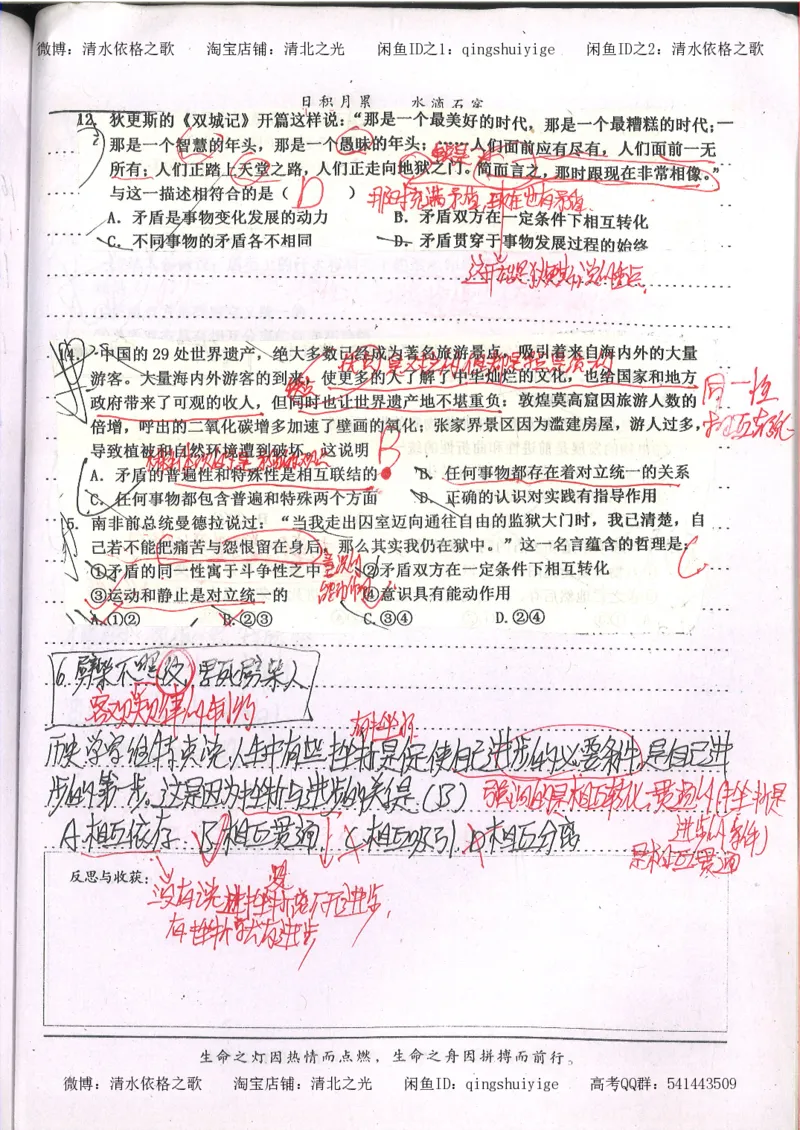 微博：清水依格之歌　淘宝店铺：清北之光　闲鱼ID之1：qingshuiyige　闲鱼ID之2：清水依格之歌
日积月累　水滴石穿
12. 狄更斯的《双城记》开篇这样说：“那是一个最美好的时代，那是一个最糟糕的时代；
那是一个智慧的年头，那是一个愚昧的年头；……人们面前应有尽有，人们面前一无
所有；人们正踏上天堂之路，人们正走向地狱之门。简而言之，那时跟现在非常相像。”
与这一描述相符合的是（ D ）
那时充满矛盾，现在也有矛盾
A. 矛盾是事物变化发展的动力　B. 矛盾双方在一定条件下相互转化
C. 不同事物的矛盾各不相同　D. 矛盾贯穿于事物发展过程的始终
中国的29处世界遗产，绝大多数已经成为著名旅游景点，吸引着来自海内外的大量
游客。大量海内外游客的到来，使更多的人了解了中华灿烂的文化，也给国家和地方
政府带来了可观的收入，但同时也让世界遗产地不堪重负：敦煌莫高窟因旅游人数的
同一性
倍增，呼出的二氧化碳增多加速了壁画的氧化；张家界景区因为滥建房屋，游人过多，
导致植被和自然环境遭到破坏。这说明 B
A. 矛盾的普遍性和特殊性是相互联结的　B. 任何事物都存在着对立统一的关系
C. 任何事物都包含普遍和特殊两个方面　D. 正确的认识对实践有指导作用
5. 南非前总统曼德拉说过：“当我走出囚室迈向通往自由的监狱大门时，我已清楚，自
己若不能把痛苦与怨恨留在身后，那么其实我仍在狱中。”这一名言蕴含的哲理是： C
①矛盾的同一性寓于斗争性之中　②矛盾双方在一定条件下相互转化
意识的
能动作用
③运动和静止是对立统一的　④意识具有能动作用
A.①②　B.②③　C.③④　D.②④
6. 劈柴不照纹，累死劈柴人
客观规律的制约
有挫折
历史学家纽特克说，人生中有些挫折是促使自己进步的必要条件，是自己进
步的第一步。这是因为挫折与进步的关系是（B）
强调的是相互转化、贯通（挫折是
进步的条件）
是相互贯通
A.相互依存　B.相互贯通　C.相互吸引　D.相互分离
反思与收获：
没有说
有挫折就有进步
生命之灯因热情而点燃，生命之舟因拼搏而前行。
微博：清水依格之歌　淘宝店铺：清北之光　闲鱼ID：qingshuiyige　高考QQ群：541443509